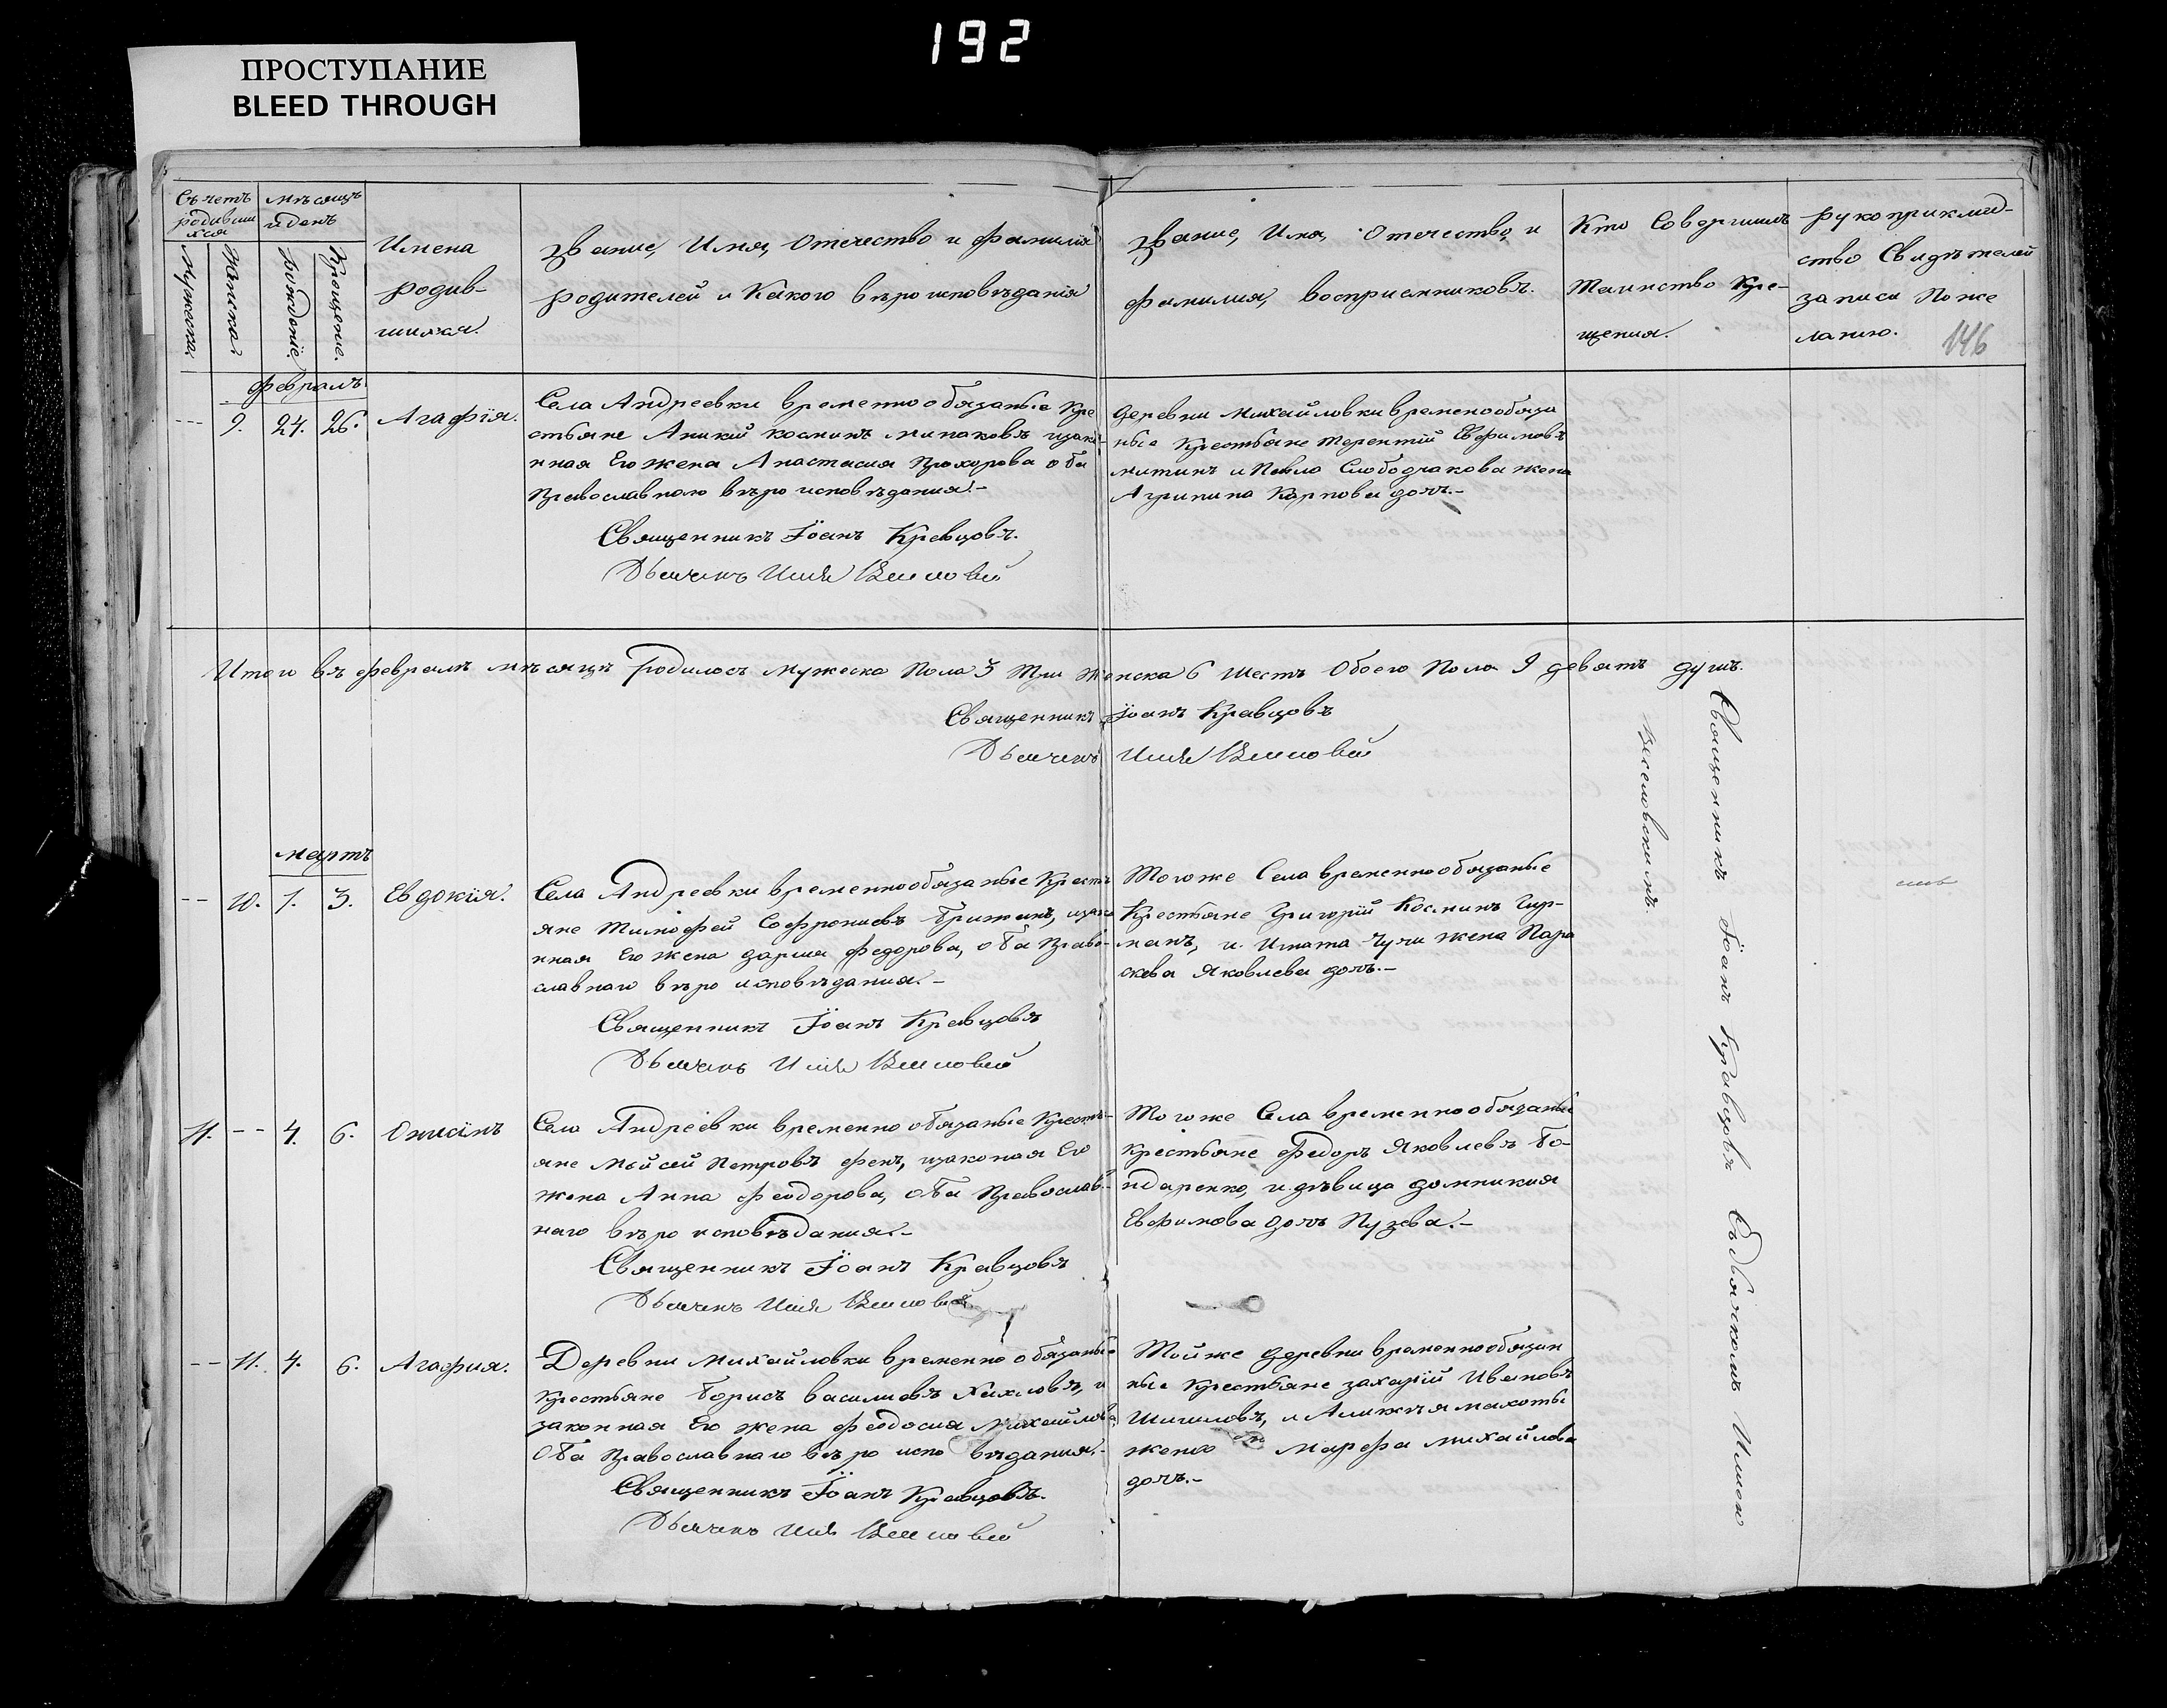 192
ПРОСТУПАНИЕ
BLEED THROUGH
Съчетъ
родивши
хся
Мужеска.
Женска.
мѣсяцъ
и денъ
Рожденіе
Крещеніе.
Имена
родив-
шихся.
Звание, Имя, Отечество и фамилія
родителей и Какого вѣроисповѣданія
Звание, Имя, Отечество, и
фамилия, восприемниковъ.
Кто Совершилъ
Таинство Кре-
щения.
Рукоприклад-
ство Свидѣтелей
записи По же
ланию.
146
февраль
9. 24. 26. Агафія.
Села Андреевки временнообязаные Кре
стьяне Аникий Косминъ и закон-
ная Его жена Анастасия Прохорова оба
Православного вѣроисповѣдания.-
Священникъ Іоанъ Кравцовъ.
Дьячекъ Илія
деревни Михайловки временообяза
ные Крестьяне Терентій Евфимовъ
Митинъ и Павла жена
Агрипина Карпова дочъ.-
Итого въ февралѣ мѣсяцѣ родилось мужеска Пола 3 Три Женска 6 Шесть Обоего Пола 9 девять душъ.
Священникъ Іоанъ Кравцовъ
Дьячекъ Илія
мартъ
-- 10. 1. 3. Евдокія.
Села Андреевки временнообязаные Кресть
яне Тимофей Софрониевъ и закон
ная Его жена дария Федорова, оба Право-
славнаго вѣроисповѣдания.-
Священникъ Іоанъ Кравцовъ
Дьячекъ Илія
Тогоже Села временнообязаные
Крестьяне Григорій Косминъ Гир-
манъ, и Игната жена Пара
скева Яковлева дочъ.-
11. -- 4. 6. Онисімъ
Села Андреевки временно обязаные Кресть-
яне Мойсей Петровъ изаконая Его
жена Анна Феодорова, оба Православ-
наго вѣроисповѣдания.-
Священникъ Іоанъ Кравцовъ
Дьячекъ Илія
Тогоже Села временнообязаные
крестьяне Федоръ Яковлевъ Бо-
ндаренко, и дѣвица домникия
Евфимова дочъ Пузева.-
-- 11. 4. 6. Агафия.
Деревни Михайловки временно обязаные
Крестьяне Борисъ Василиевъ и
законная Его жена Феодосия Михаилова
Оба Православнаго вѣроисповѣдания.-
Священникъ Іоанъ Кравцовъ.
Дьячекъ Илія
Тойже деревни временнообязан
ные Крестьяне захарій Ивановъ
Шишловъ, и
жена Марфа Михайлова
дочъ.-
Священникъ Іоанъ Кравцовъ Съ дьячкомъ Илиею